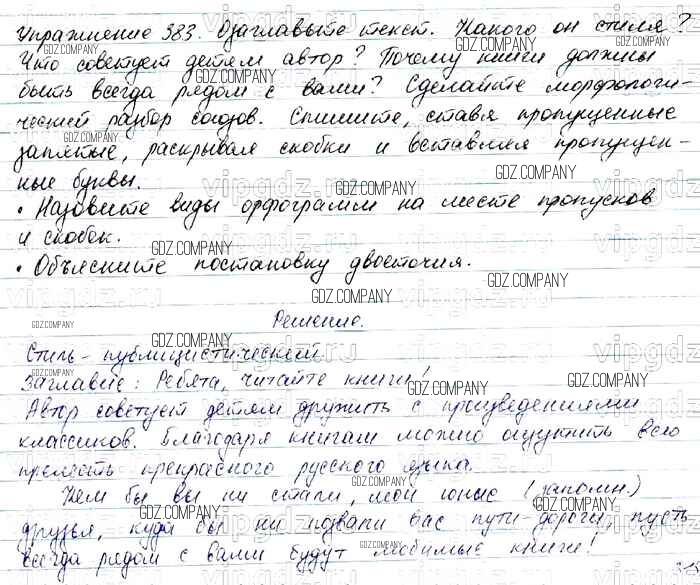 Упражнение 383. Озаглавьте текст. Какого он стиля?
Что советует детям автор? Почему книги должны
быть всегда рядом с вами? Сделайте морфологи-
ческий разбор союзов. Спишите, ставя пропущенные
запятые, раскрывая скобки и вставляя пропущен-
ные буквы.
• Назовите виды орфограмм на месте пропусков
и скобок.
• Объясните постановку двоеточия.
Решение.
Стиль - публицистический
Заглавие: Ребята, читайте книги!
Автор советует детям дружить с произведениями
классиков. Благодаря книгам можно ощутить всю
прелесть прекрасного русского языка.
Кем бы вы ни стали, мои юные (запомн.)
друзья, куда бы ни позвали вас пути-дороги, пусть
всегда рядом с вами будут любимые книги!